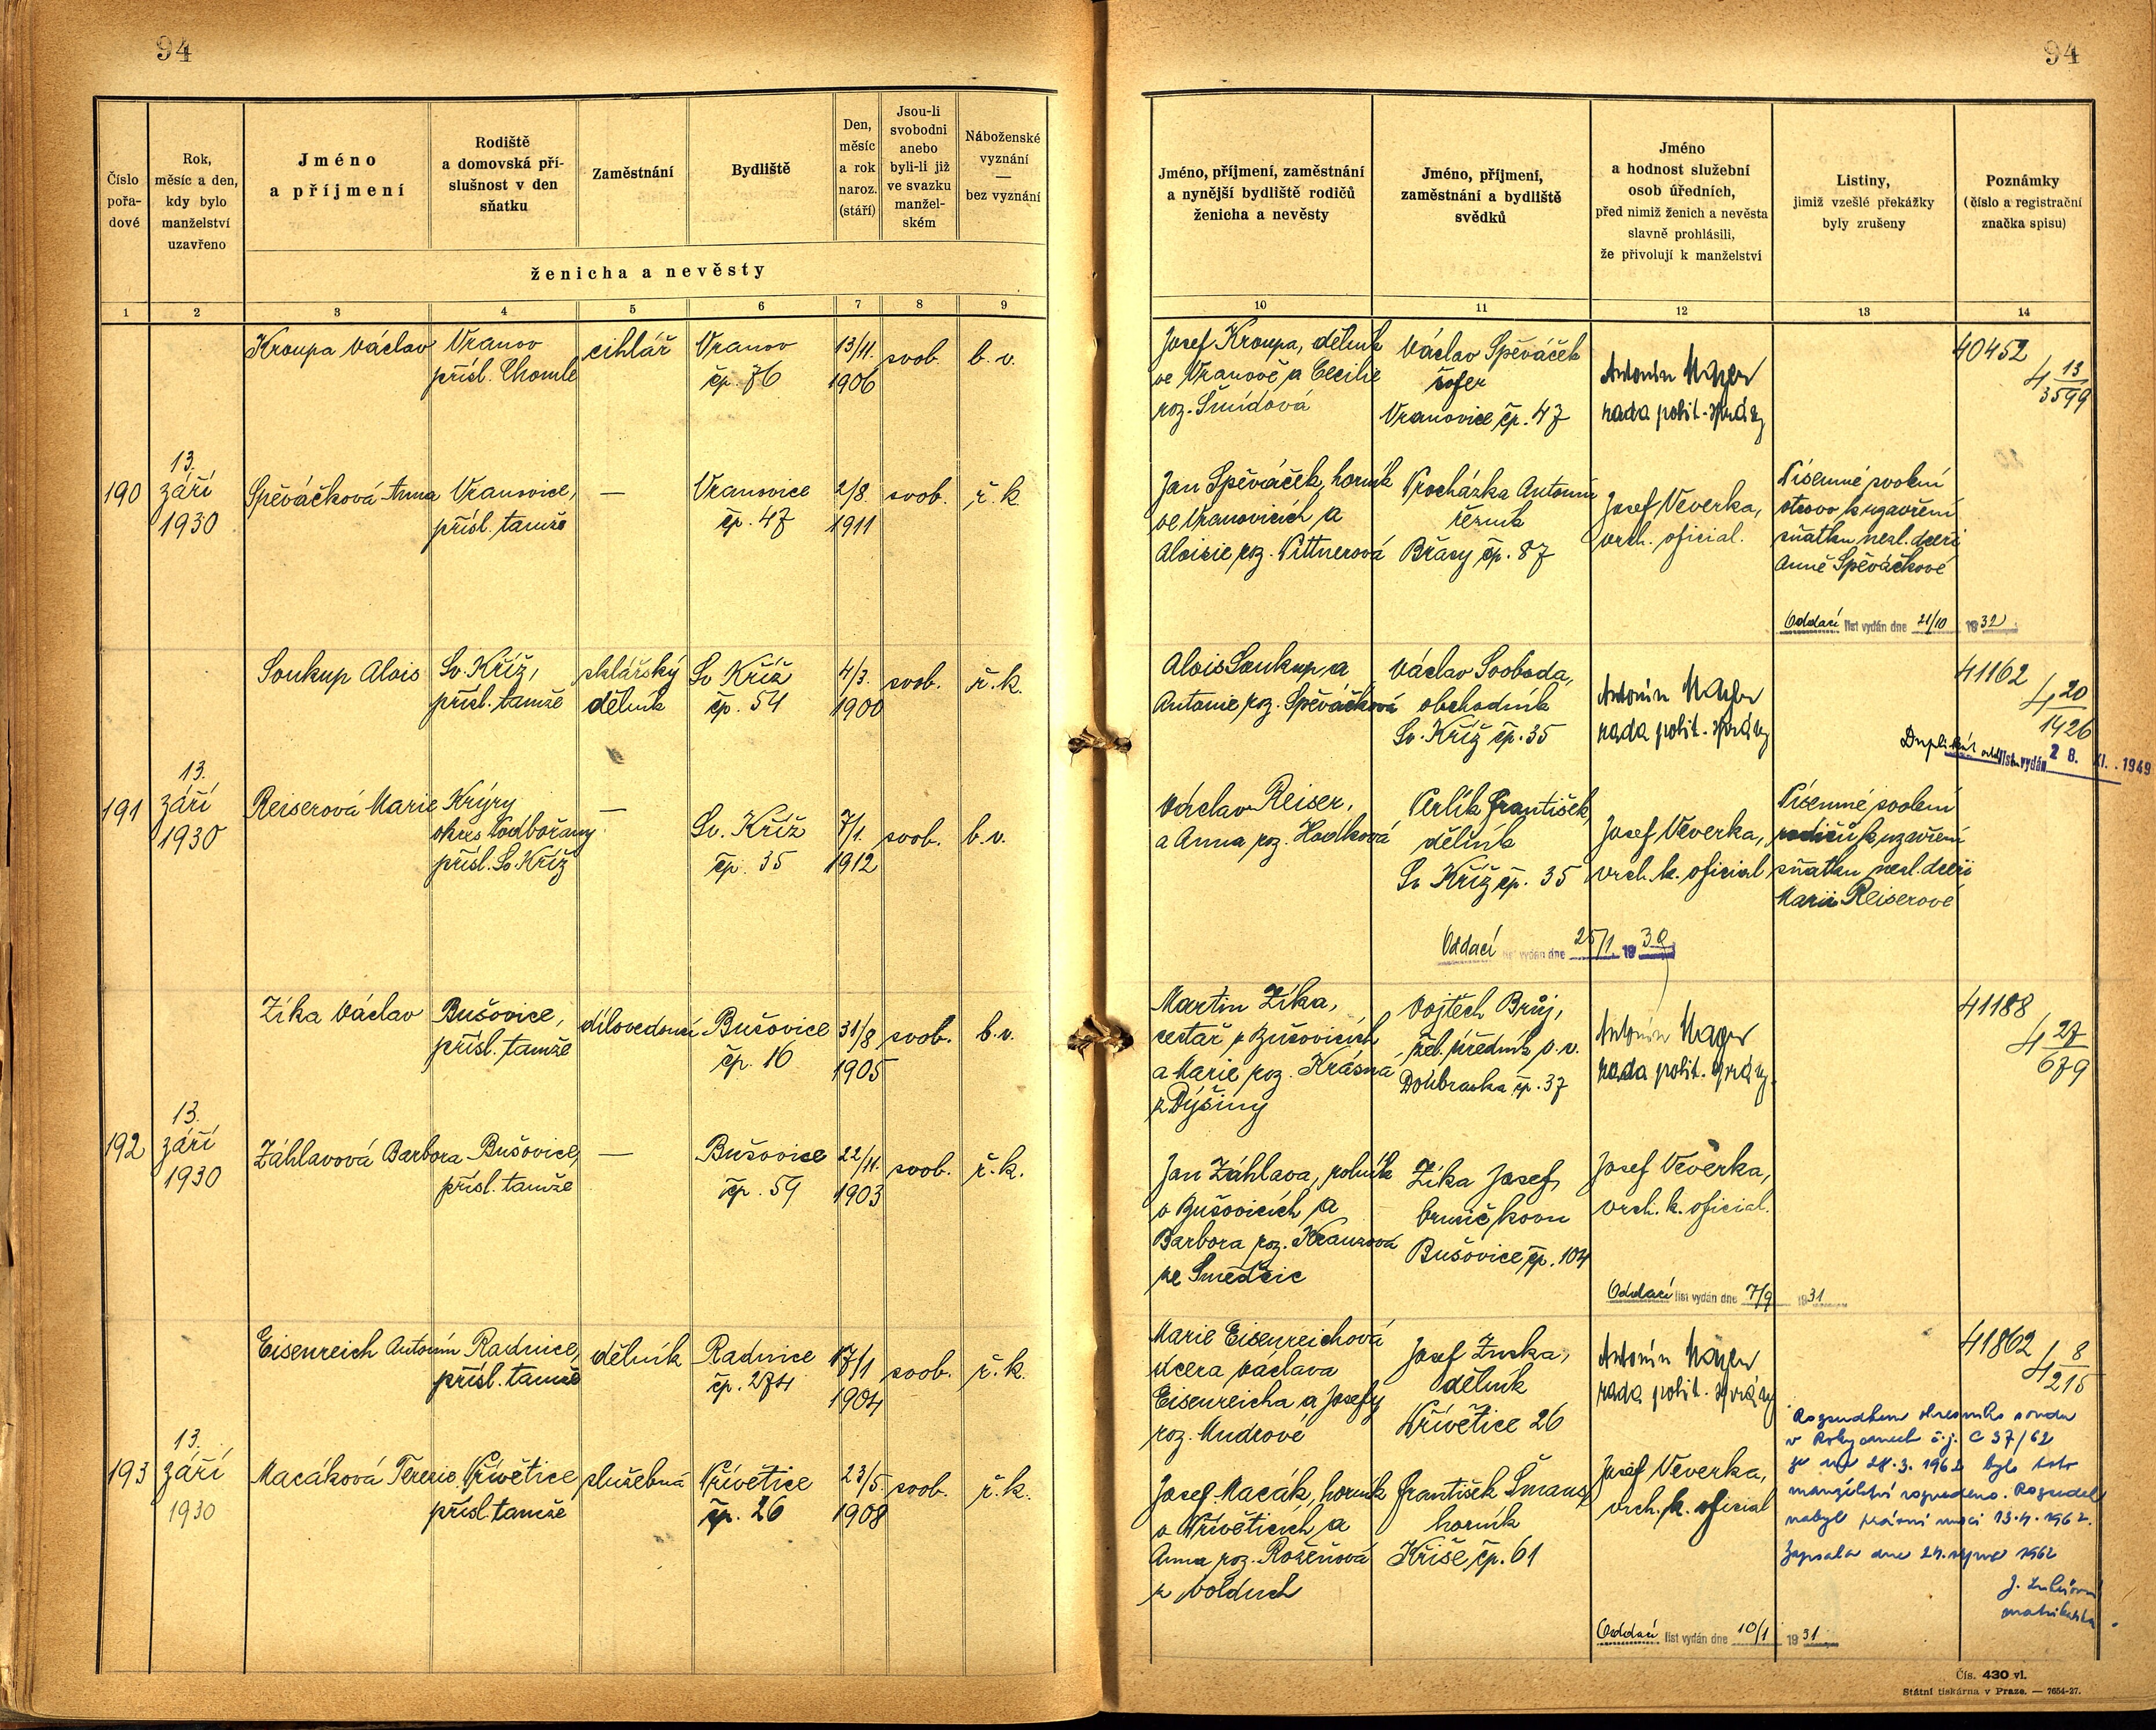 94
94
Číslo
pořa-
dové
Rok,
měsíc a den,
kdy bylo
manželství
uzavřeno
Jméno
a příjmení
Rodiště
a domovská pří-
slušnost v den
sňatku
Zaměstnání
Bydliště
Den,
měsíc
a rok
naroz.
(stáří)
Jsou-li
svobodni
anebo
byli-li již
ve svazku
manžel-
ském
Náboženské
vyznání
—
bez vyznání
ženicha a nevěsty
1 2 3 4 5 6 7 8 9
Jméno, příjmení, zaměstnání
a nynější bydliště rodičů
ženicha a nevěsty
Jméno, příjmení,
zaměstnání a bydliště
svědků
Jméno
a hodnost služební
osob úředních,
před nimiž ženich a nevěsta
slavně prohlásili,
že přivolují k manželství
Listiny,
jimiž vzešlé překážky
byly zrušeny
Poznámky
(číslo a registrační
značka spisu)
10 11 12 13 14
Kroupa Václav
Vranov
přísl. Chomle
cihlář
Vranov
čp. 76
13/11.
1906
svob.
b. v.
Josef Kroupa, dělník
ve Vranově a Cecilie
roz. Šmídová
Václav Spěváček
šofer
Vranovice čp. 47
Antonín Mager
rada polit. správy
40452
4 13
3599
190
13.
září
1930
Spěváčková Anna
Vranovice,
přísl. tamže
—
Vranovice
čp. 47
2/8.
1911
svob.
ř. k.
Jan Spěváček, horník
ve Vranovicích a
Aloisie roz. Pittnerová
Procházka Antonín
řezník
Břasy čp. 87
Josef Veverka,
vrch. oficial.
Písemné svolení
otcovo k uzavření
sňatku nezl. dceři
Anně Spěváčkové
Oddací list vydán dne 21/10 1932
Soukup Alois
Sv. Kříž,
přísl. tamže
sklářský
dělník
Sv Kříž
čp. 54
4/3.
1900
svob.
ř. k.
Alois Soukup a
Antonie roz. Spěváčková
Václav Svoboda,
obchodník
Sv. Kříž čp. 35
Antonín Mager
rada polit. správy
41162
4 20
1426
Duplikát odd. list vydán 28. XI. 1949
191
13.
září
1930
Reiserová Marie
Krýry
okres Podbořany
přísl. Sv. Kříž
—
Sv. Kříž
čp. 35
7/1.
1912
svob.
b. v.
Václav Reiser,
a Anna roz. Hodková
Perlík František,
dělník
Sv Kříž čp. 35
Josef Veverka,
vrch. k. oficial
Písemné svolení
rodičů k uzavření
sňatku nezl. dceři
Marii Reiserové
Oddací list vydán dne 25/1. 1939
Zíka Václav
Bušovice,
přísl. tamže
dílovedoucí
Bušovice
čp. 16
31/8
1905
svob.
b. v.
Martin Zíka,
cestář v Bušovicích
a Marie roz. Krásná
z Dýšiny
Vojtech Brůj,
žel. úředník v. v.
Doubravka čp. 37
Antonín Mager
rada polit. správy.
41188
4 27
679
192
13.
září
1930
Záhlavová Barbora
Bušovice,
přísl. tamže
—
Bušovice
čp. 59
22/11.
1903
svob.
ř. k.
Jan Záhlava, rolník
v Bušovicích a
Barbora roz. Krauzová
ze Smědčic
Zíka Josef,
brusič kovu
Bušovice čp. 104
Josef Veverka,
vrch. k. oficial.
Oddací list vydán dne 7/9 1931
Eisenreich Antonín
Radnice,
přísl. tamže
dělník
Radnice
čp. 274
17/1
1904
svob.
ř. k.
Marie Eisenreichová
dcera Václava
Eisenreicha a Josefy
roz. Mudrové
Josef Zuska,
dělník
Vřívětice 26
Antonín Mager
rada polit. správy
41862
4 8
215
193
13.
září
1930
Macáková Terezie
Přívětice
přísl. tamže
služebná
Přívětice
čp. 26
23/5.
1908
svob.
ř. k.
Josef Macák, horník
v Přívěticích a
Anna roz. Roženová
z Volduch
František Šmaus,
horník
Kříše čp. 61
Josef Veverka,
vrch. k. oficial
Rozsudkem okresního soudu
v Rokycanech č. j. C 37/62
ze dne 28. 3. 1962 bylo toto
manželství rozvedeno. Rozsudek
nabyl právní moci 13. 4. 1962.
Zapsala dne 24. srpna 1962
matrikářka
Oddací list vydán dne 10/1 1931
Čís. 430 vl.
Státní tiskárna v Praze. — 7654-27.